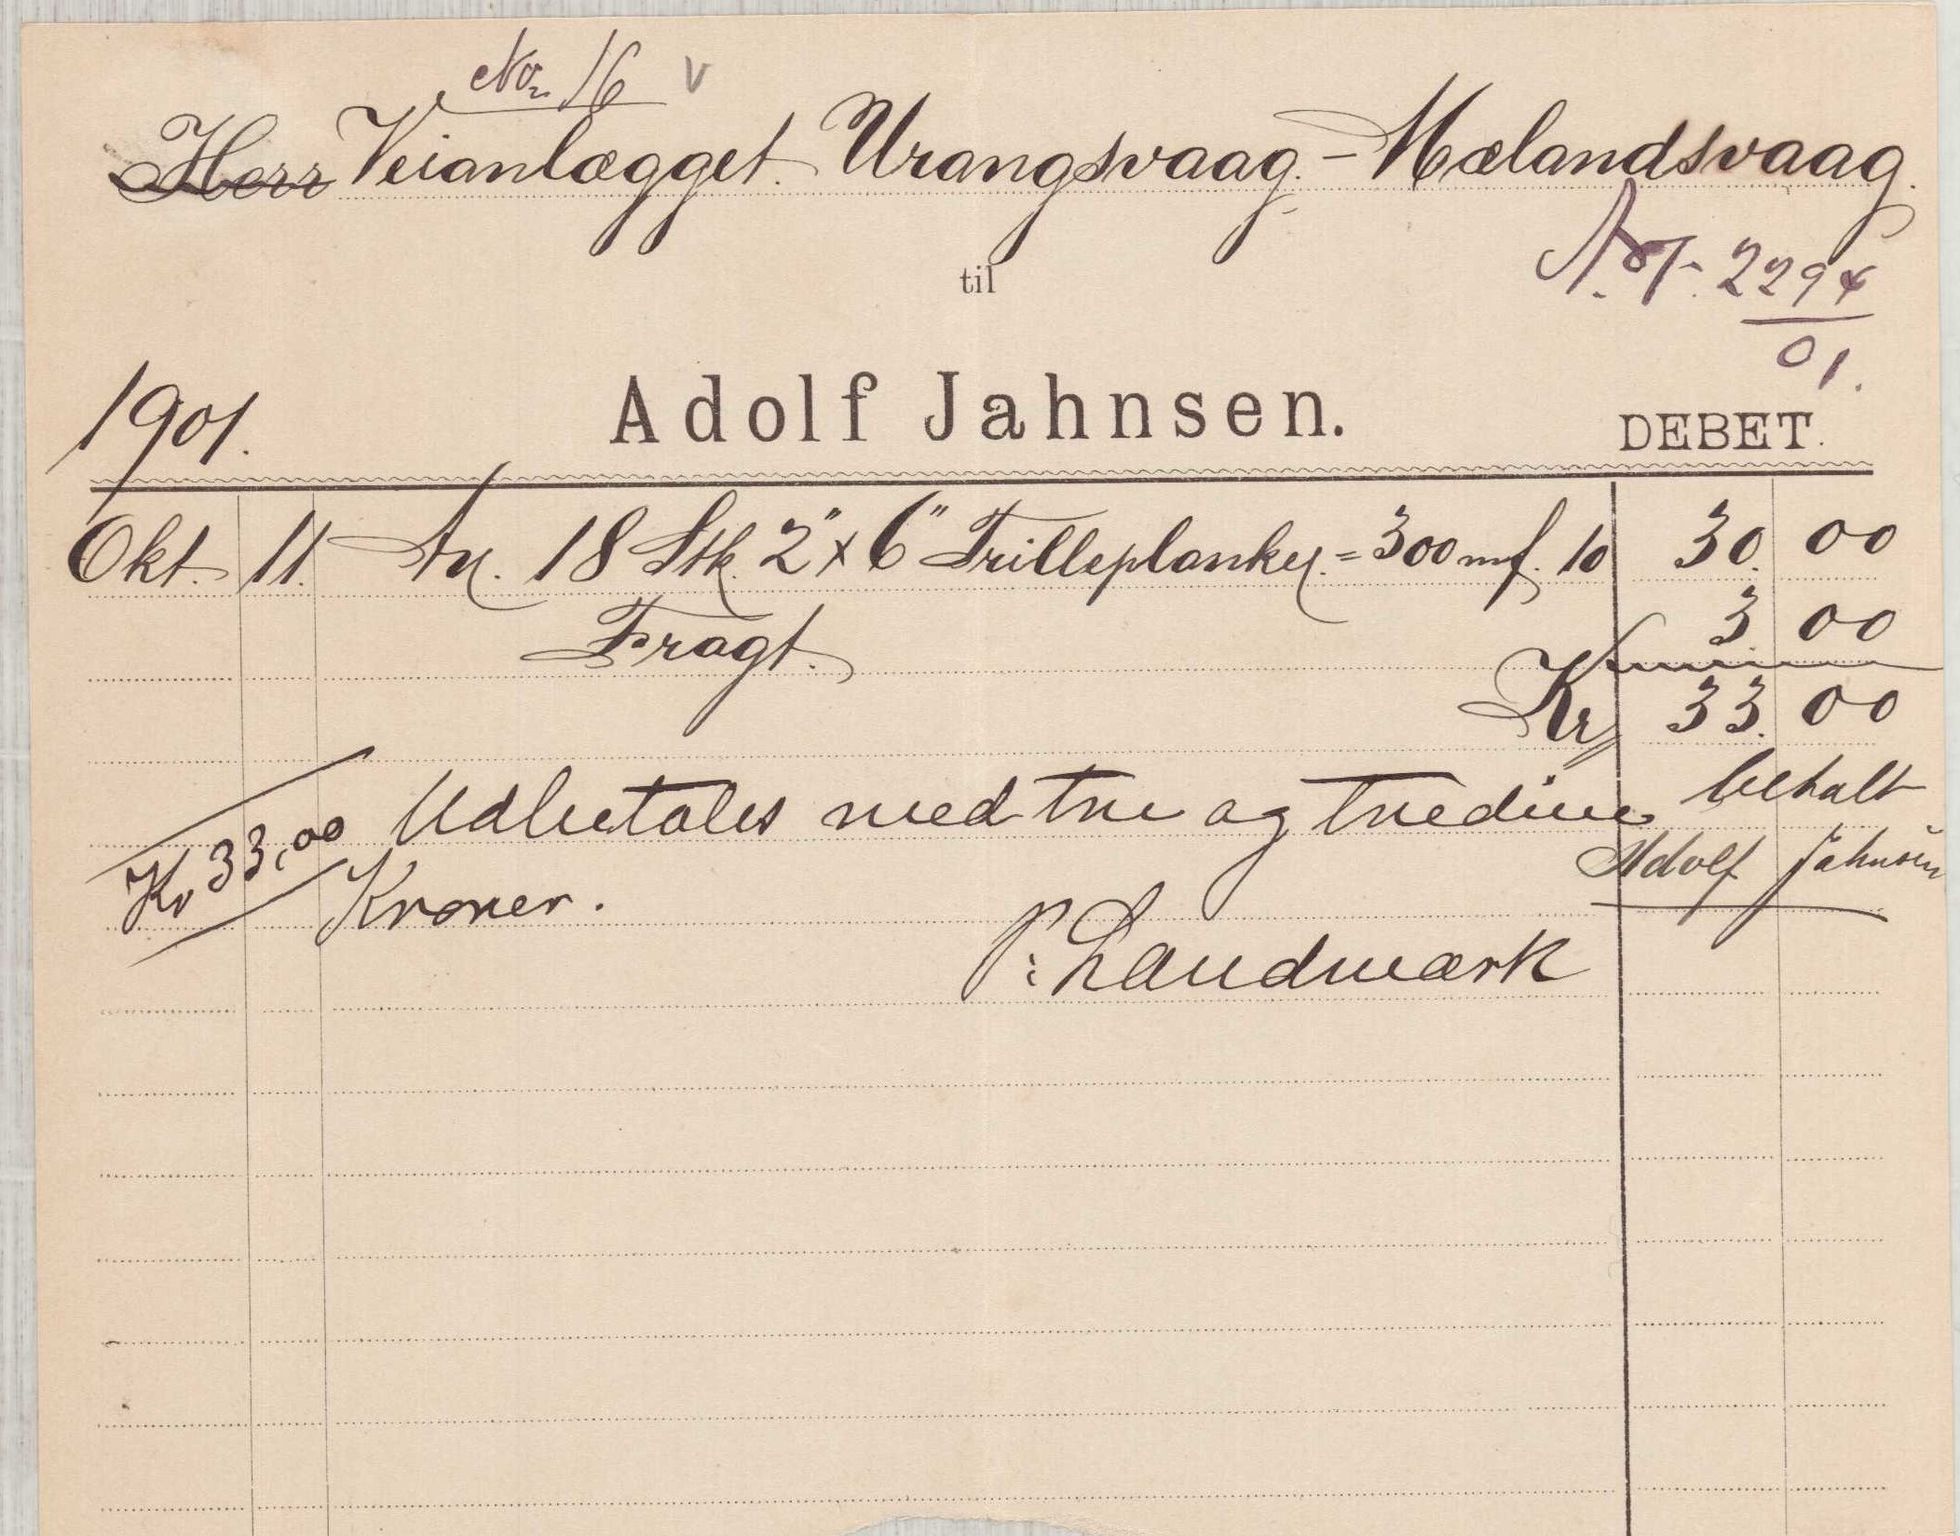 No 16 V
Herr Veianlægget Urangsvaag - Mælandsvaag.
2294
01.
til
1901. Adolf Jahnsen. DEBET.
Okt. 11. An. 18 Stk. 2" x 6" Trilleplanker = 300 mf. 10 30. 00
Fragt. 3. 00
Kr 33. 00
Kr 33,00 Udbetales med tre og tredive
Kroner.
betalt
Adolf Jahnsen
P: Landmark